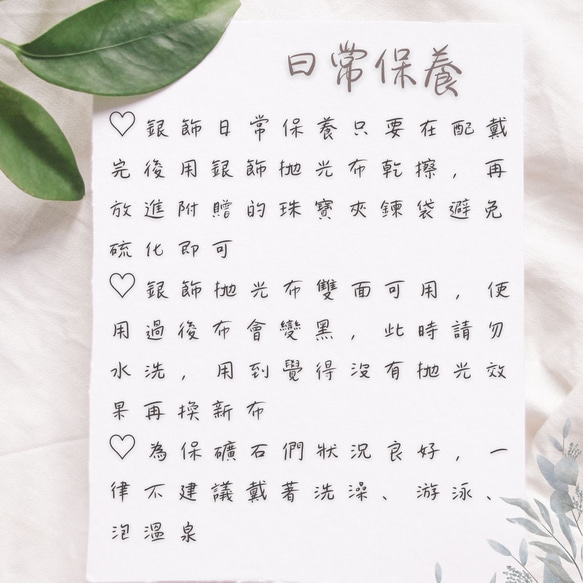 日常保養
♡銀飾日常保養只要在配戴
完後用銀飾拋光布乾擦，再
放進附贈的珠寶夾鍊袋避免
硫化即可
♡銀飾拋光布雙面可用，使
用過後布會變黑，此時請勿
水洗，用到覺得沒有拋光效
果再換新布
♡為保礦石們狀況良好，一
律不建議戴著洗澡、游泳、
泡溫泉